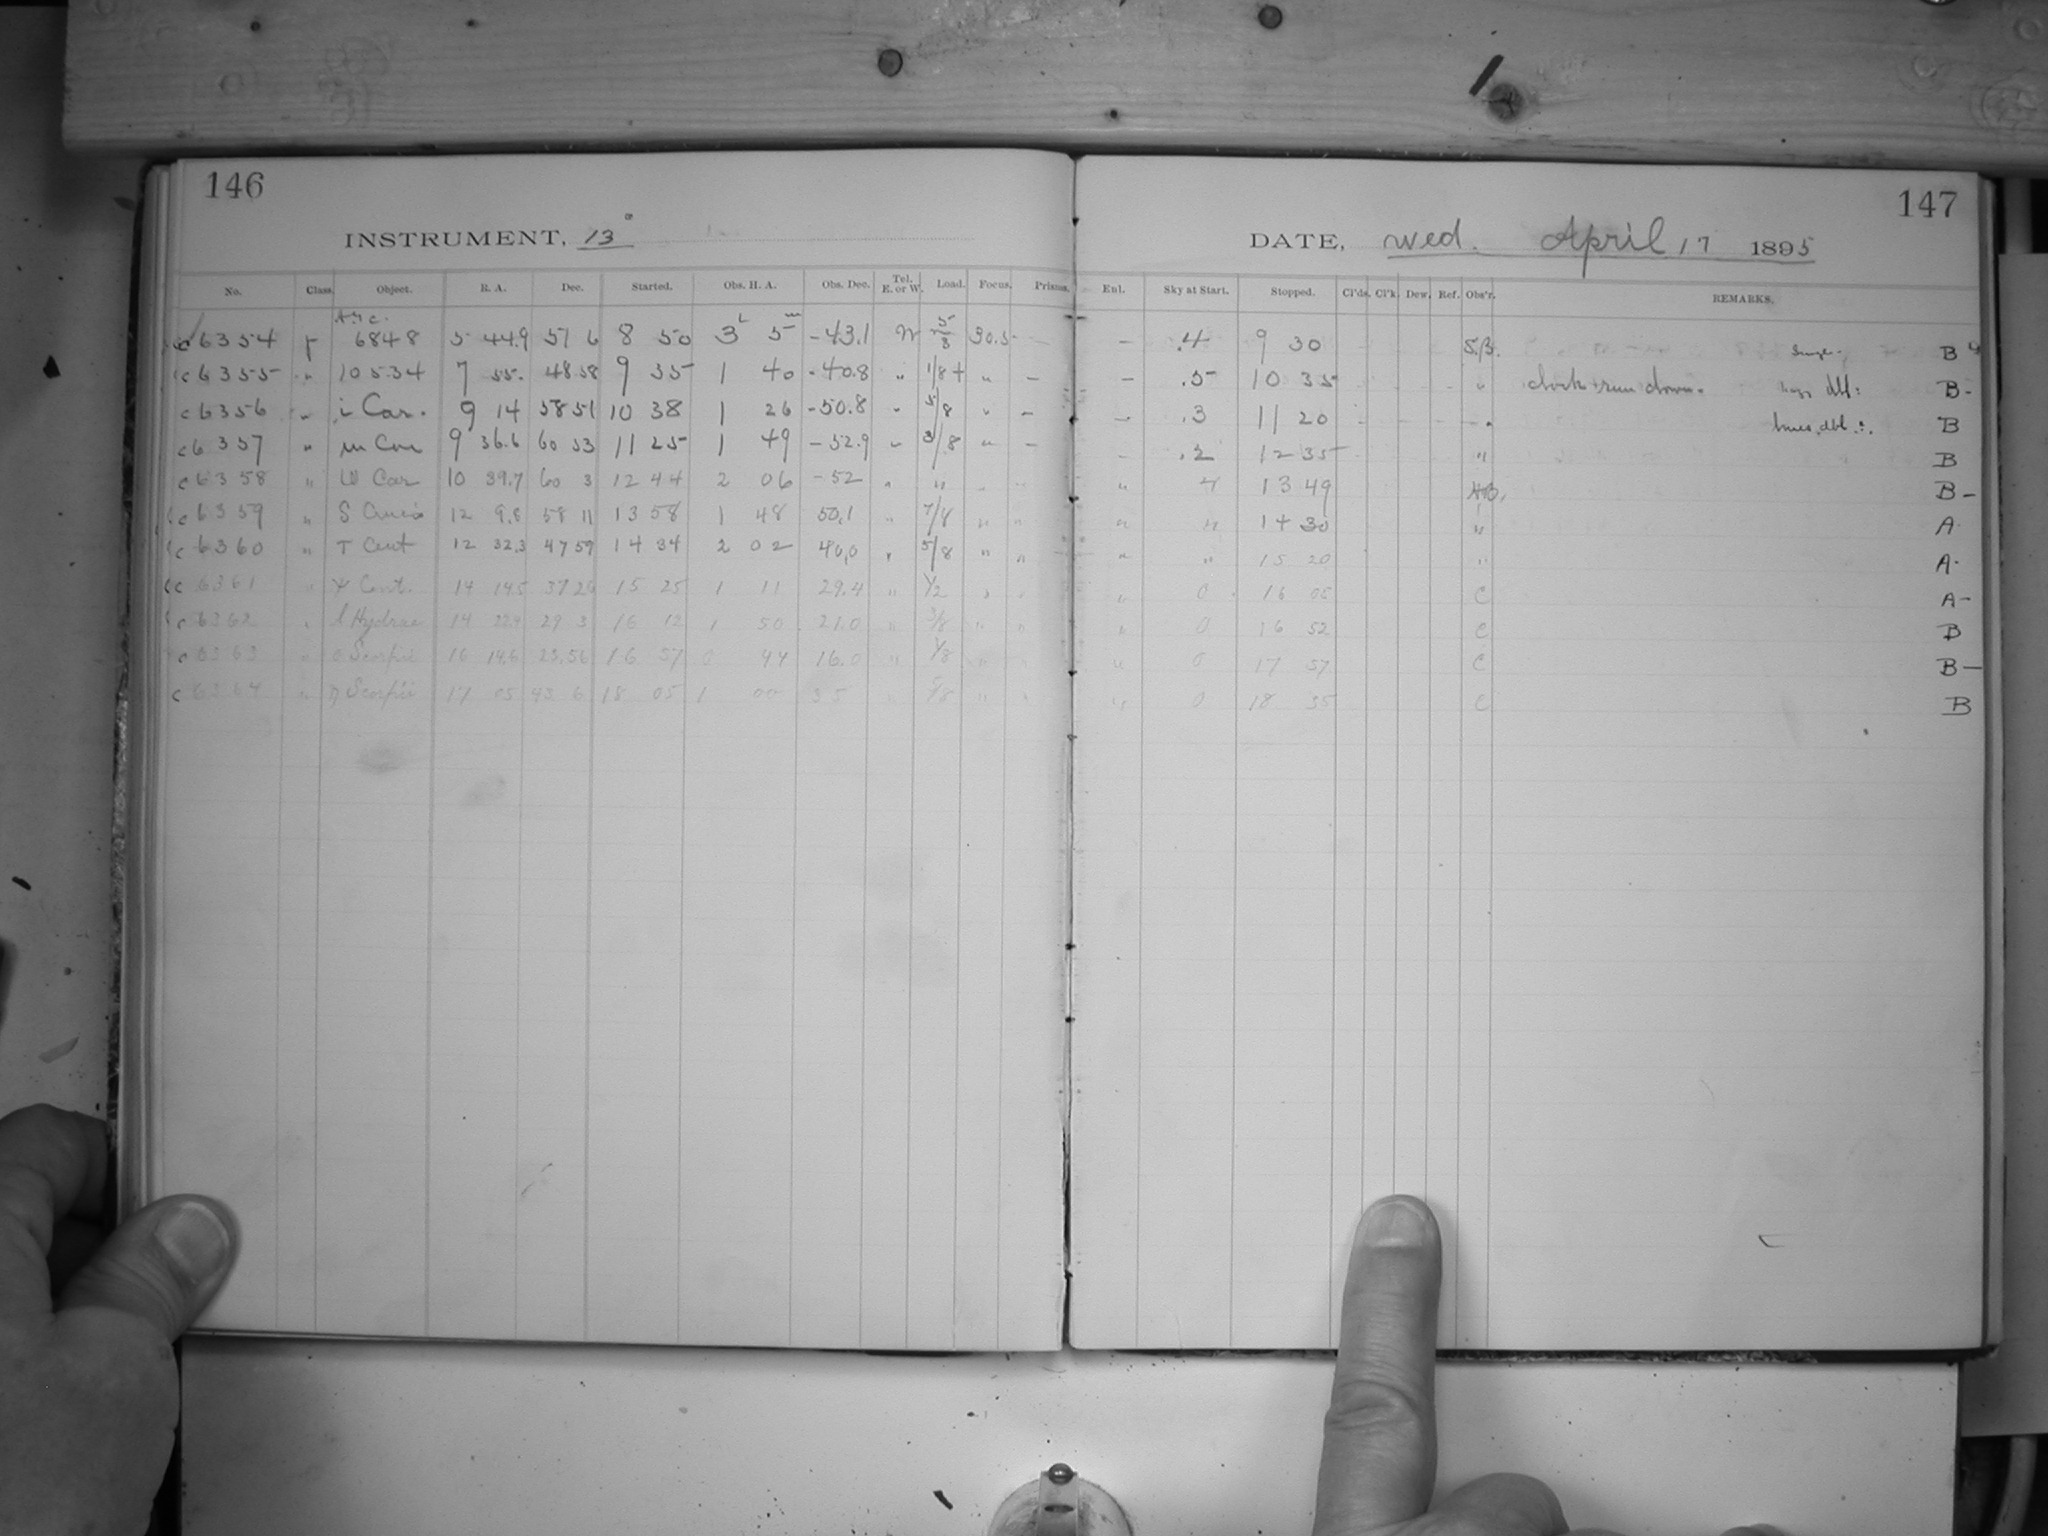 146
147
INSTRUMENT, 13"
DATE, Wed. April 17 1895
No. Class. Object. R. A. Dec. Started. Obs. H. A. Obs. Dec. Tel. E. or W. Load. Focus. Prisms. Enl. Sky at Start. Stopped. Cl'ds. Cl'k. Dew. Ref. Obs'r. REMARKS.
c 6354 6848 5 44.9 51 6 8 50 3h 5m -43.1 W 30.5 - .4 9 30 S.B. B
c 6355 " 10534 7 55. 48 58 9 35 1 40 -40.8 " 1/8+ " - - .5 10 35 " clock run down. B-
c 6356 " i Car. 9 14 58 51 10 38 1 26 -50.8 " 5/8 " - - .3 11 20 " lines dbl. B
c 6357 " m Car 9 36.6 60 53 11 25 1 49 -52.9 " 3/8 " - - .2 12 35 " B
c 6358 " W Car 10 39.7 60 3 12 44 2 06 -52 " " " " " 13 49 B-
c 6359 " S Crucis 12 9.8 58 11 13 58 1 48 50.1 " 7/8 " " " " 14 30 " A
c 6360 " T Cent 12 32.3 47 59 14 34 2 02 40.0 " 5/8 " " " " 15 20 " A-
c 6361 " Cent. 14 14.5 37 26 15 25 1 11 29.4 " 1/2 " " " 0 16 05 C A-
c 6362 " Hydrae 14 29 3 16 12 1 50 21.0 " 3/8 " " " 0 16 52 C B
c 6363 " σ Scorpii 16 14.6 16 57 0 44 16.0 " 1/8 " " " 0 17 57 C B-
c 6364 " η Scorpii 17 05 43 6 18 05 1 00 35 " 5/8 " " " 0 18 35 C B